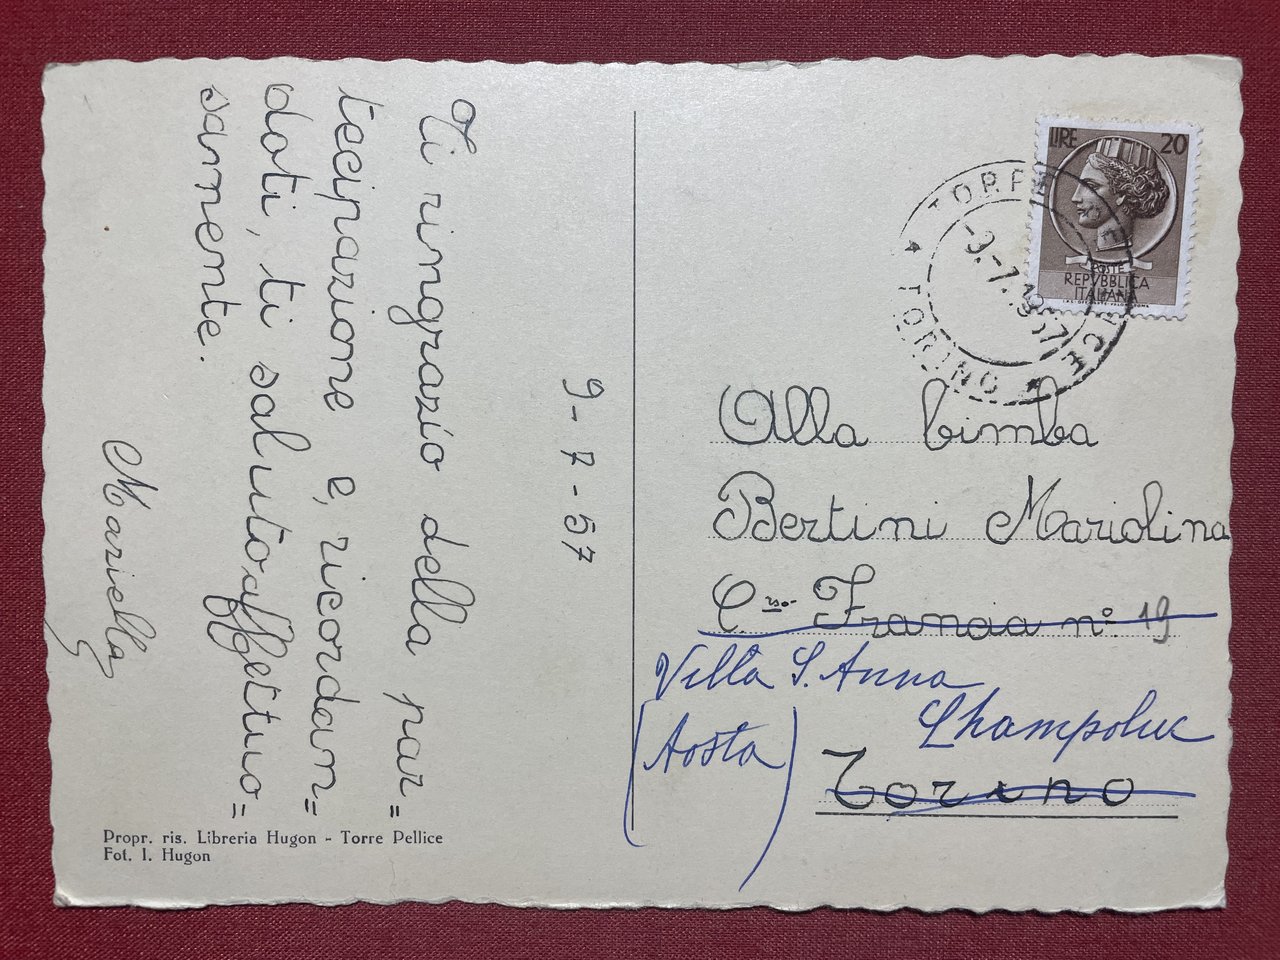 Ti ringrazio della par=
tecipazione e, ricordan=
doti, ti saluto affettuo=
samente.
Mariella
9-7-57
Propr. ris. Libreria Hugon - Torre Pellice
Fot. I. Hugon
LIRE 20
POSTE
REPVBBLICA
ITALIANA
TORRE PELLICE
-9.-7.1957
* TORINO *
Alla bimba
Bertini Mariolina
C.rso Francia n° 19
Villa S. Anna
Champoluc
(Aosta)
Torino